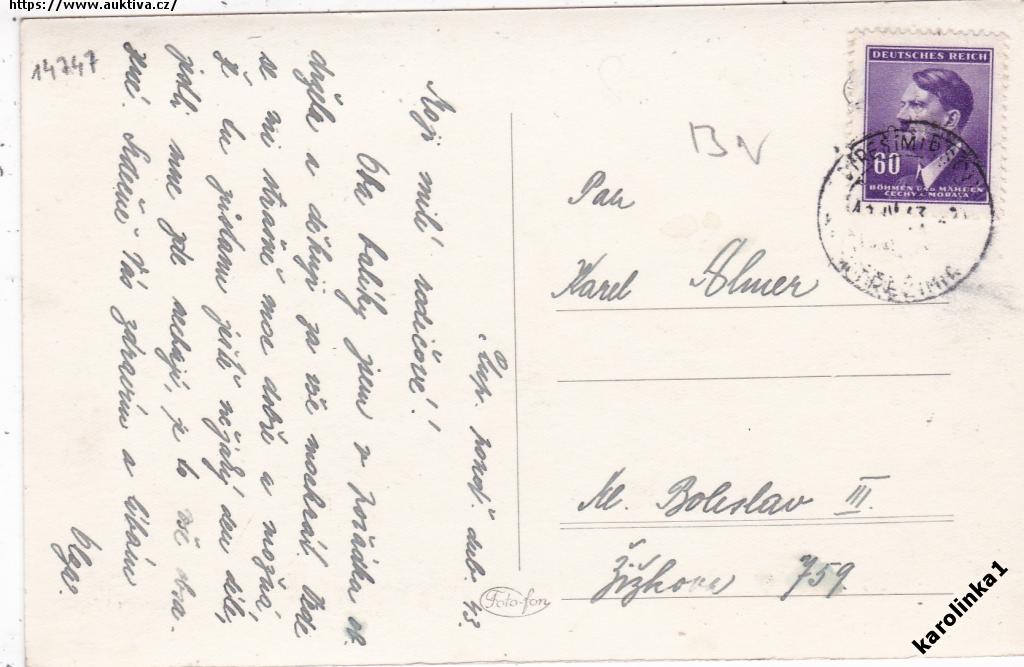 https://www.auktiva.cz/
14747
DEUTSCHES REICH
60
BÖHMEN UND MÄHREN
ČECHY A MORAVA
BN
Pan
Karel Almer
Ml. Boleslav III.
Žižkova 759
dub. 43.
Moji milí rodičové!
Oba balíky jsem v pořádku ob-
držela a děkuji za vše mockrát. Vede
se mi strašně moc dobře a možná,
že tu zůstanu ještě nějaký den déle,
jestli mne zde nechají, je to vše
Srdečně Vás zdravím a líbám
Olga.
Foto-fon
karolinka1